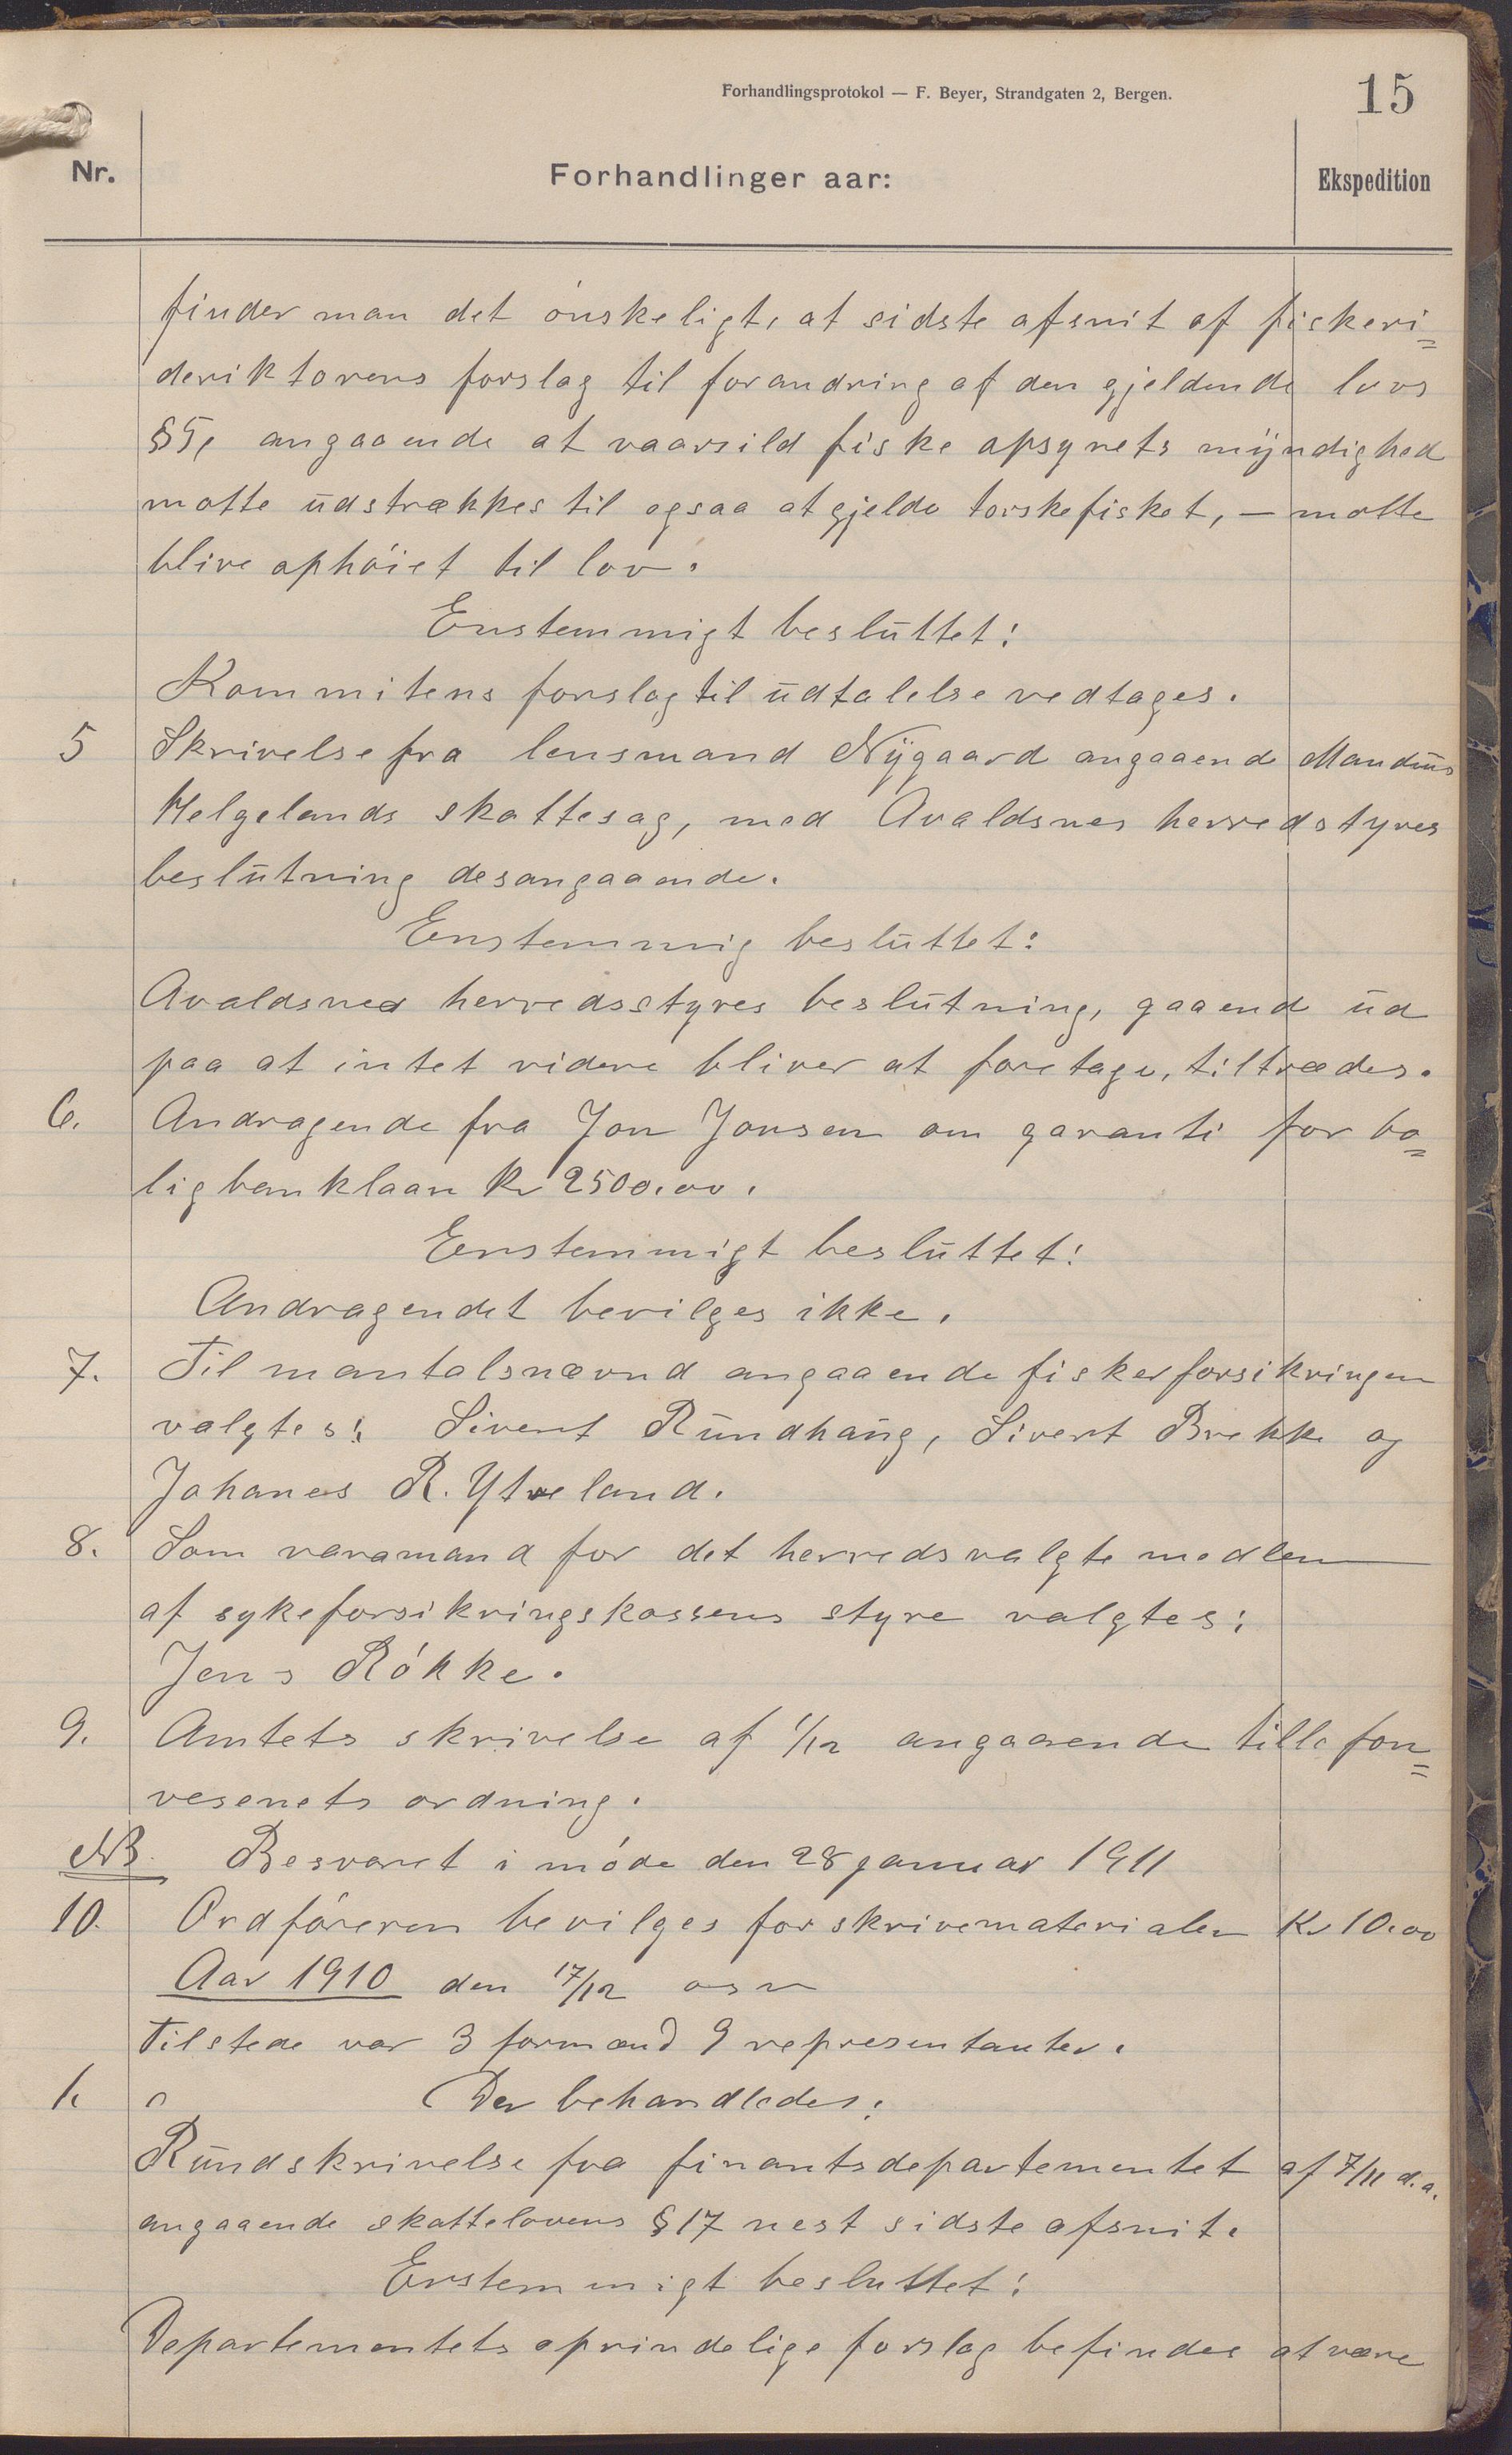 Forhandlingsprotokol — F. Beyer, Strandgaten 2, Bergen.
15
Nr.
Forhandlinger aar:
Ekspedition
finder man det ønskeligt, at sidste afsnit af fiskeri=
deriktorens forslag til forandring af den gjeldende lovs
§ 5, angaaende at vaarsild fiske opsynets myndighed
motte udstrækkes til ogsaa at gjelde torskefisket, — motte
blive ophøiet til lov.
Enstemmigt besluttet:
Kommitens forslag til udtalelse vedtages.
5 Skrivelse fra lensmand Nygaard angaaende Mandius
Helgelands skattesag, med Avaldsnes herredstyres
beslutning desangaaende.
Enstemmig besluttet:
Avaldsnes herredsstyres beslutning, gaaend ud
paa at intet videre bliver at foretage, tiltrædes.
6. Andragende fra Jon Jonsen om garanti for bo=
ligbanklaan Kr 2500.00.
Enstemmigt besluttet:
Andragendet bevilges ikke.
7. Til mantalsnævnd angaaende fiskerforsikringen
valgtes: Sivert Rundhaug, Sivert Brekke og
Johanes R. Ytreland.
8. Som varamand for det herredsvalgte medlem
af sykeforsikringskassens styre valgtes:
Jens Røkke.
9. Amtets skrivelse af 1/12 angaaende tillefon=
vesenets ordning.
NB. Besvaret i møde den 28 januar 1911
10. Ordføreren bevilges for skrivematerialer Kr 10.00
Aar 1910 den 17/12 osv
Tilstede var 3 formænd 9 representanter.
1. Der behandledes:
Rundskrivelse fra finantsdepartementet af 7/11 d.a.
angaaende skattelovens § 17 nest sidste afsnit.
Enstemmigt besluttet:
Departementets oprindelige forslag befindes at være